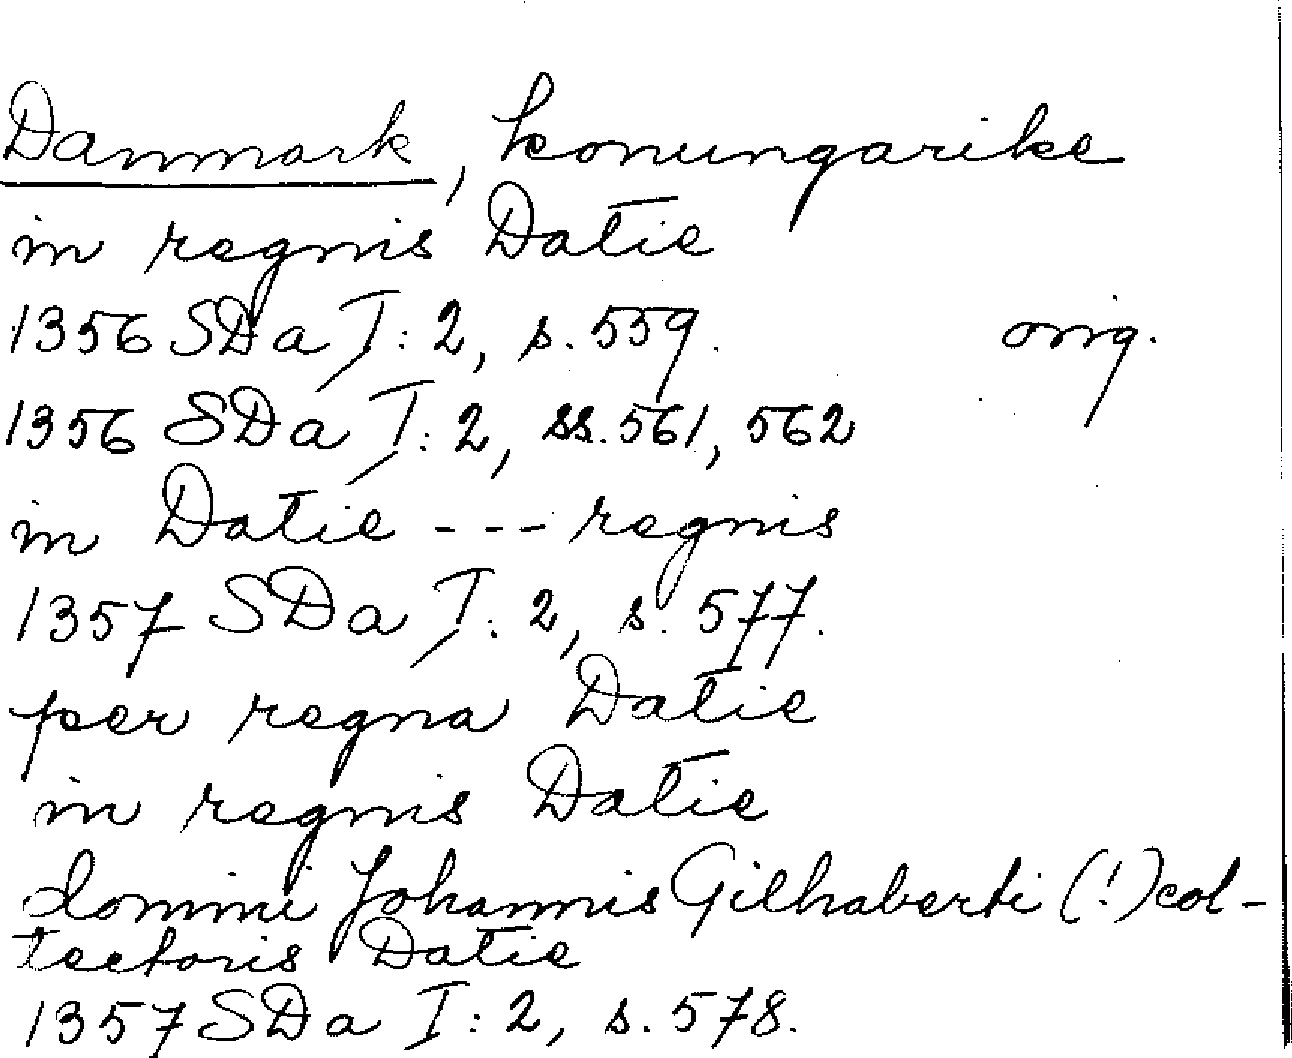 Danmark, konungarike
in regnis Datie
1356 SDa I:2, s. 559. orig.
1356 SDa I:2, ss. 561, 562
in Datie --- regnis
1357 SDa I:2, s. 577.
per regna Datie
in regnis Datie
domini Johannis Gilhaberti (!) col-
lectoris Datie
1357 SDa I:2, s. 578.